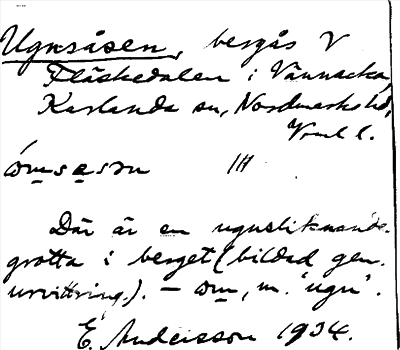 Ugnsåsen, bergås V
Fläskedalen i Vännacka,
Karlanda sn, Nordmarks hd,
Vrml l.
Där är en ugnsliknande
grotta i berget (bildad gen.
urvittring.). — , m. "ugn".
E. Andersson 1934.